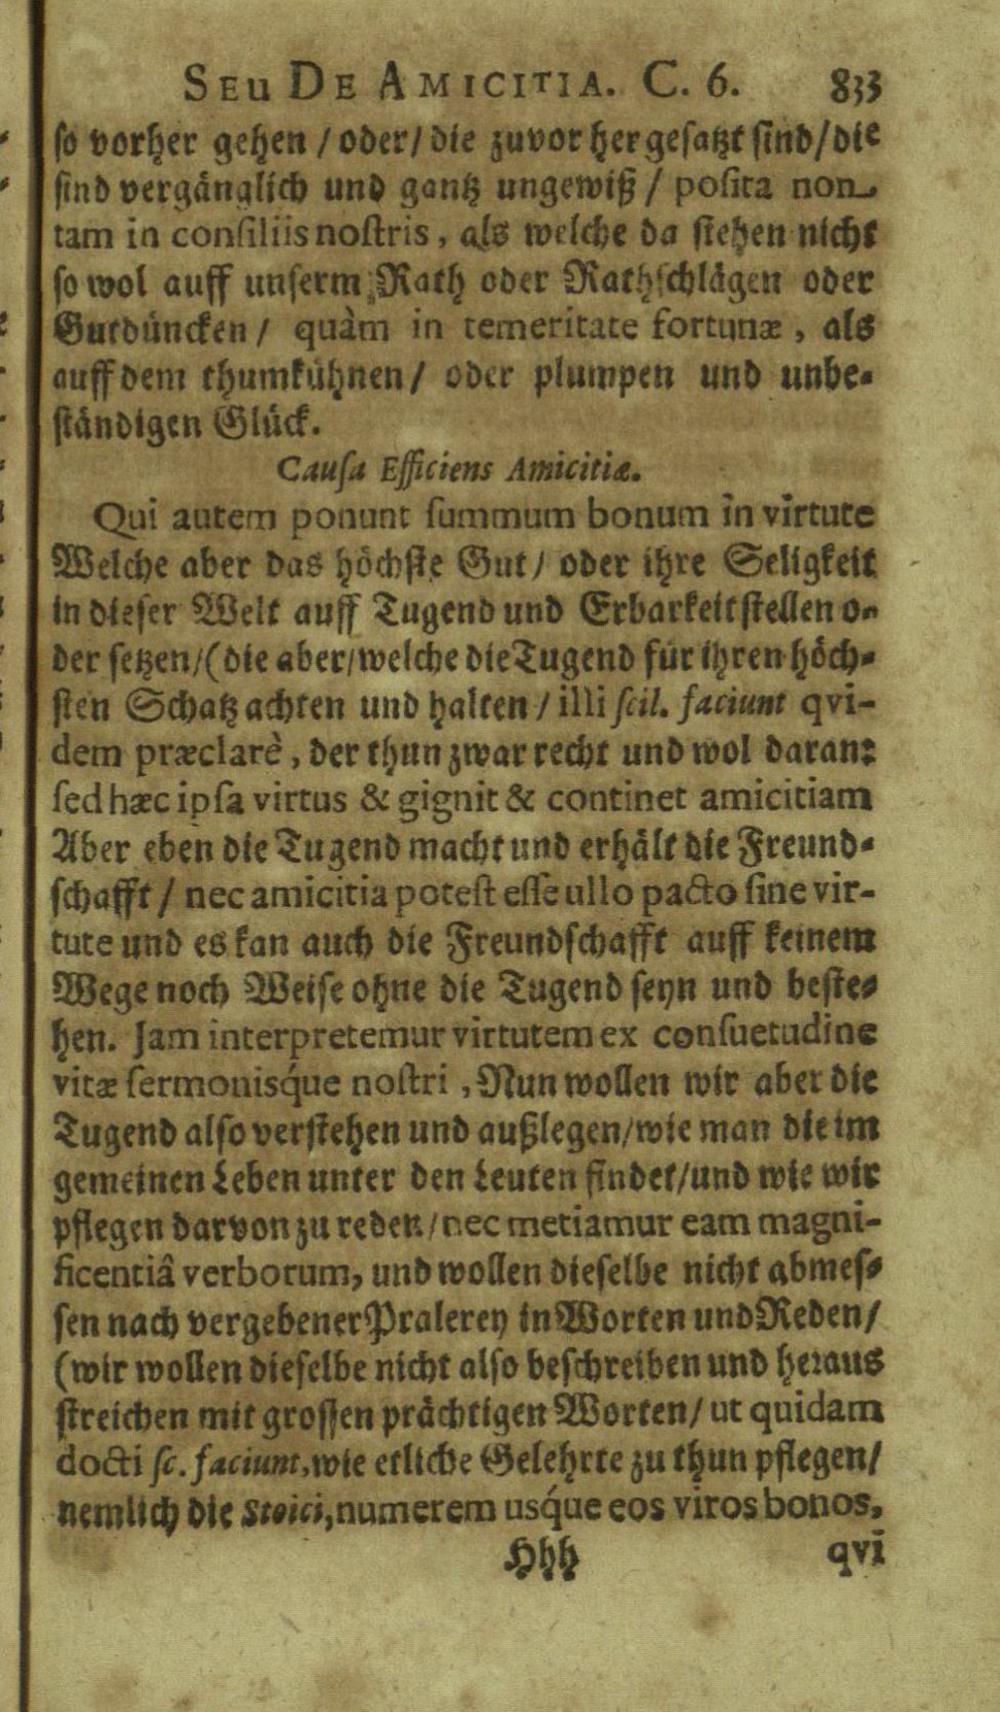 SEU DE AMICITIA. C. 6. 833
so vorher gehen / oder / die zuvor her gesatzt sind / die
sind vergänglich und gantz ungewiß / posita non
tam in consiliis nostris, als welche da stehen nicht
so wol auff unserm Rath oder Rathschlägen oder
Gutdüncken / quàm in temeritate fortunæ, als
auff dem thumkühnen / oder plumpen und unbe-
ständigen Glück.
Causa Efficiens Amicitiæ.
Qui autem ponunt summum bonum in virtute
Welche aber das höchste Gut / oder ihre Seligkeit
in dieser Welt auff Tugend und Erbarkeit stellen o-
der setzen / (die aber / welche die Tugend für ihren höch-
sten Schatz achten und halten / illi scil. faciunt qvi-
dem præclarè, der thun zwar recht und wol daran:
sed hæc ipsa virtus & gignit & continet amicitiam
Aber eben die Tugend macht und erhält die Freund-
schafft / nec amicitia potest esse ullo pacto sine vir-
tute und es kan auch die Freundschafft auff keinem
Wege noch Weise ohne die Tugend seyn und beste-
hen. Jam interpretemur virtutem ex consuetudine
vitæ sermonisq́ue nostri, Nun wollen wir aber die
Tugend also verstehen und außlegen / wie man die im
gemeinen Leben unter den Leuten findet / und wie wir
pflegen darvon zu reden / nec metiamur eam magni-
ficentiâ verborum, und wollen dieselbe nicht abmes-
sen nach vergebener Pralerey in Worten und Reden /
(wir wollen dieselbe nicht also beschreiben und heraus
streichen mit grossen prächtigen Worten / ut quidam
docti sc. faciunt, wie etliche Gelehrte zu thun pflegen /
nemlich die Stoici, numerem usq́ue eos viros bonos,
Hhh qvi